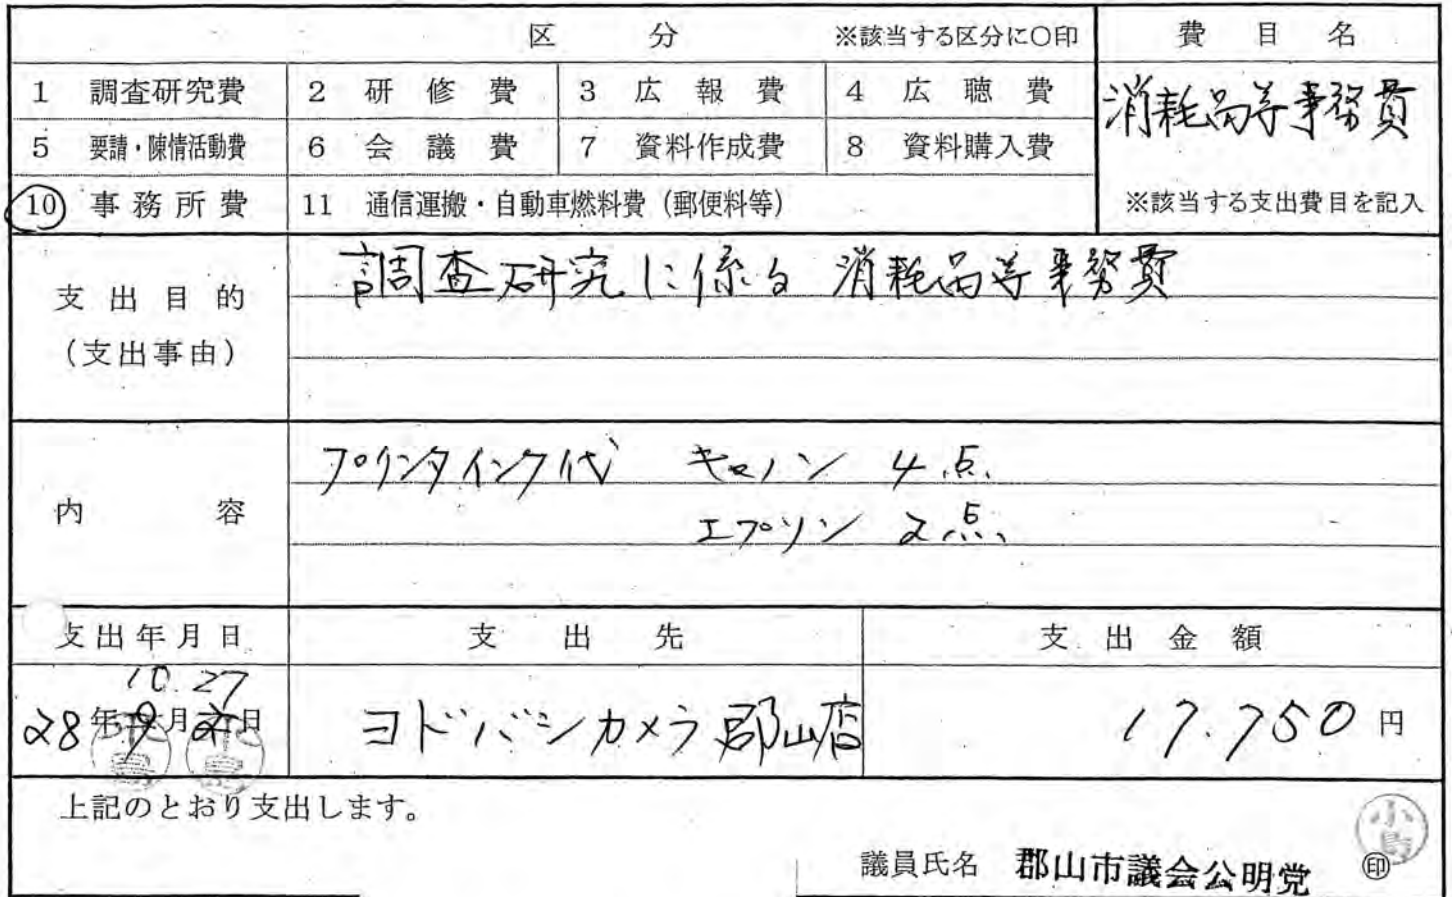 区 分 ※該当する区分に○印 費 目 名
1 調査研究費 2 研 修 費 3 広 報 費 4 広 聴 費
消耗品等事務費
5 要請・陳情活動費 6 会 議 費 7 資料作成費 8 資料購入費
10 事務所費 11 通信運搬・自動車燃料費(郵便料等) ※該当する支出費目を記入
支出目的 調査研究に係る 消耗品等事務費
(支出事由)
プリンタインク代 キャノン 4点
内 容
エプソン 2点
支出年月日 支 出 先 支 出 金 額
10 27
28年9月 日 ヨドバシカメラ郡山店 17.750円
上記のとおり支出します。
小島
議員氏名 郡山市議会公明党 ㊞